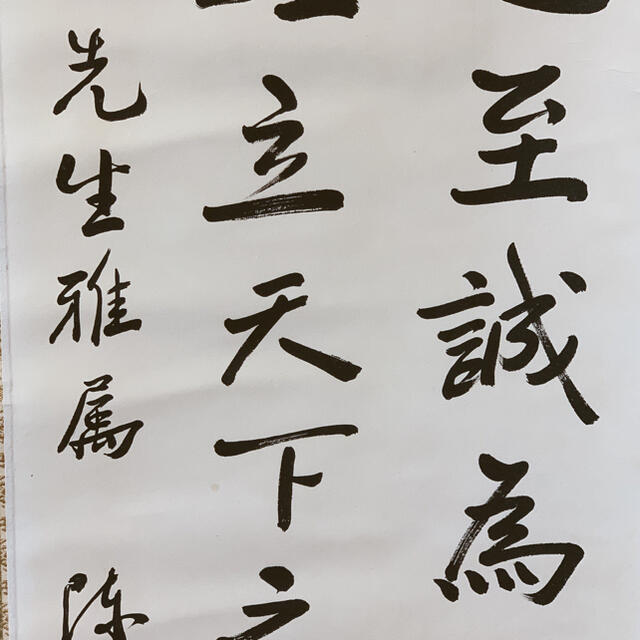 至誠為
立天下之
先生雅属 陳